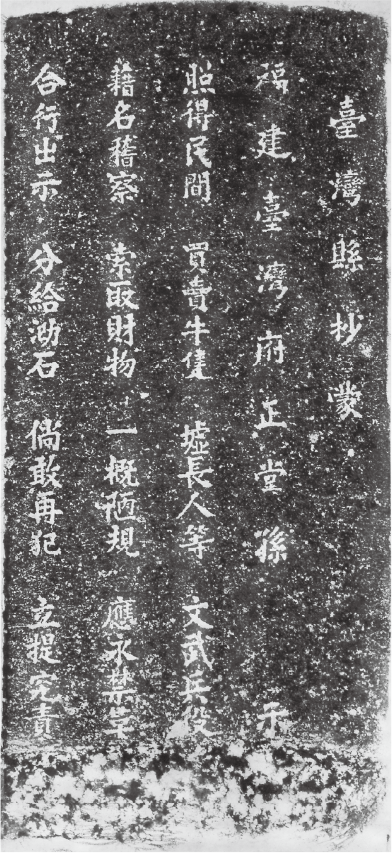 臺灣縣抄蒙
福建臺灣府正堂孫 示
照得民間 買賣牛隻 墟長人等 文武兵役
藉名稽察 索取財物 一概陋規 應永禁革
合行出示 分給泐石 倘敢再犯 立提究責